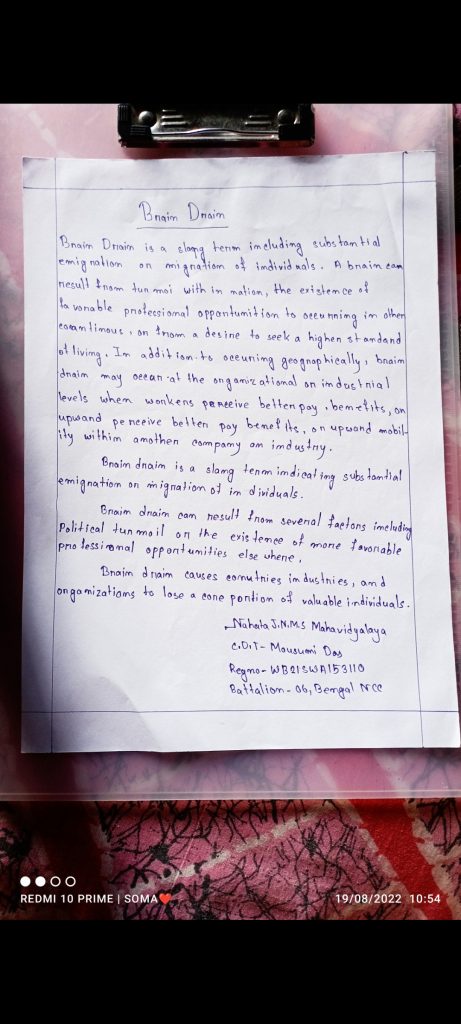 Brain Drain
Brain Drain is a slang term including substantial
emigration or migration of individuals. A brain can
result from tur moi with in nation, the existence of
favorable professional opportunition to occurring in other
corantinous, or from a desire to seek a higher standard
of living. In addition to occuring geographically, brain
drain may occur at the organizational or industrial
levels when workers perceive better pay, benefits, or
upward perceive better pay benefits, or upward mobil-
ity within another company or industry.
Brain drain is a slang term indicating substantial
emigration or migration of in dividuals.
Brain drain can result from several factors including
Political turmoil or the existence of more favorable
professional opportunities else where.
Brain drain causes countries industries, and
organizations to lose a core portion of valuable individuals.
Nahata J.N.M.S Mahavidyalaya
C.D.T- Mousumi Das
Regno- WB21SWA153110
Battalion- 06, Bengal NCC
REDMI 10 PRIME | SOMA❤
19/08/2022 10:54